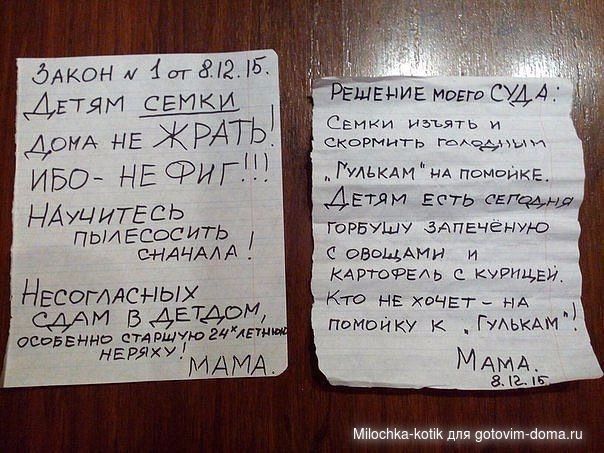 ЗАКОН N 1 от 8.12.15.
ДЕТЯМ СЕМКИ
ДОМА НЕ ЖРАТЬ!
ИБО - НЕ ФИГ!!!
НАУЧИТЕСЬ
ПЫЛЕСОСИТЬ
СНАЧАЛА!
НЕСОГЛАСНЫХ
СДАМ В ДЕТДОМ,
ОСОБЕННО СТАРШУЮ 24х ЛЕТНЮЮ
НЕРЯХУ!
МАМА.
РЕШЕНИЕ МОЕГО СУДА:
СЕМКИ ИЗЪЯТЬ И
СКОРМИТЬ ГОЛОДНЫМ
„ГУЛЬКАМ" НА ПОМОЙКЕ.
ДЕТЯМ ЕСТЬ СЕГОДНЯ
ГОРБУШУ ЗАПЕЧЁНУЮ
С ОВОЩАМИ И
КАРТОФЕЛЬ С КУРИЦЕЙ.
КТО НЕ ХОЧЕТ - НА
ПОМОЙКУ К „ГУЛЬКАМ"!
МАМА.
8.12.15.
Milochka-kotik для gotovim-doma.ru